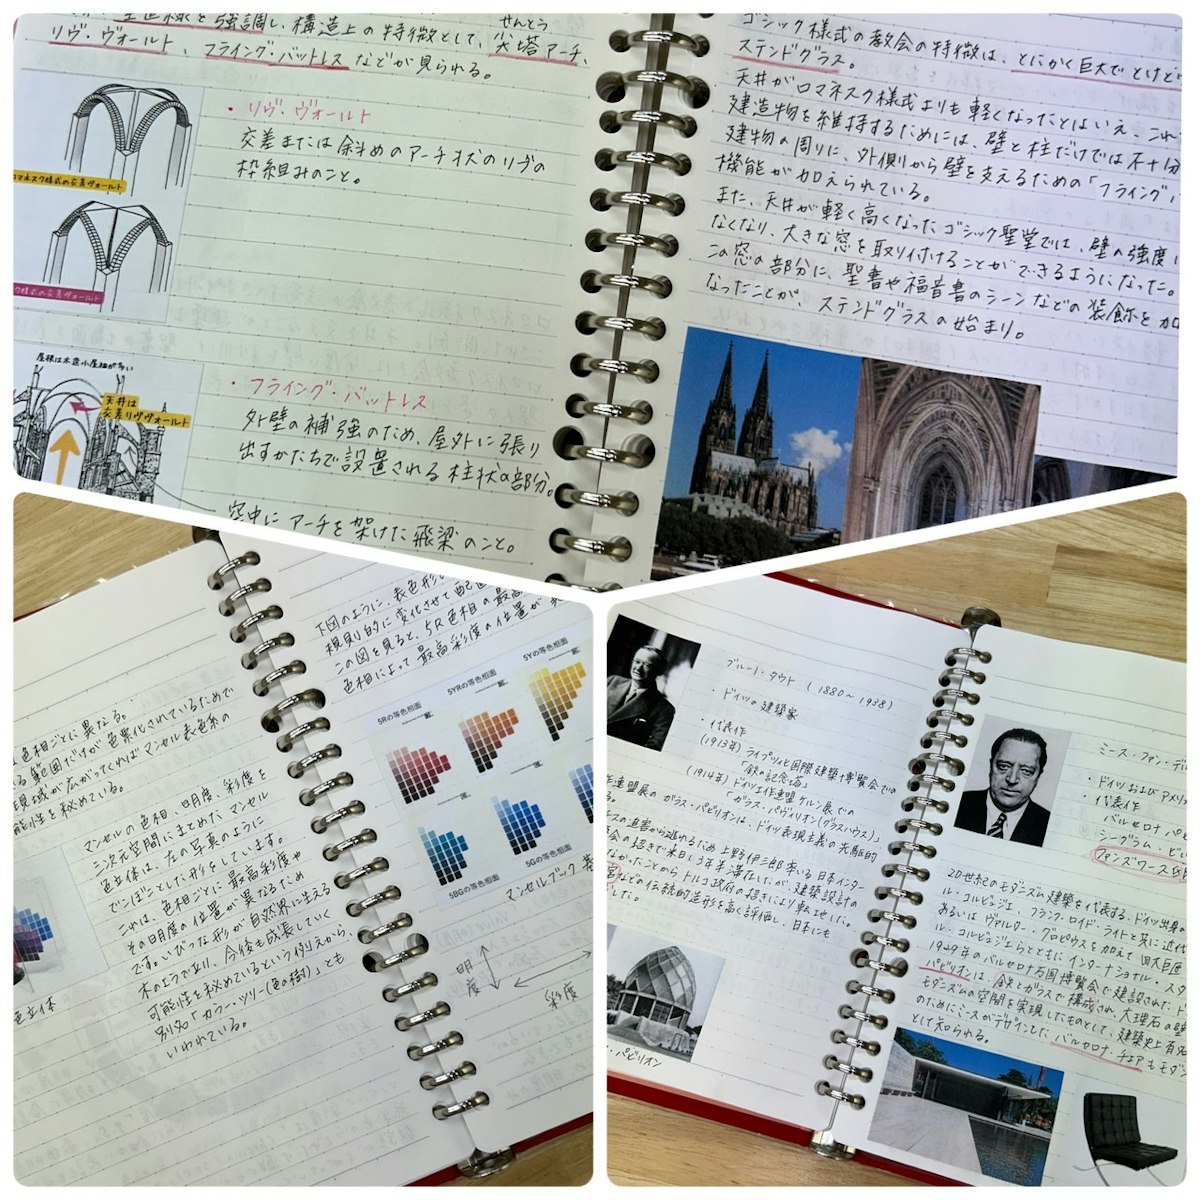 垂直線を強調し、構造上の特徴として、尖塔アーチ、
せんとう
リヴ・ヴォールト、フライング・バットレスなどが見られる。
・リヴ・ヴォールト
交差または余斜めのアーチ状のリヴの
枠組みのこと。
ロマネスク様式の交差ヴォールト
様式の交差ヴォールト
屋根は木造小屋組が多い
天井は
交差リヴヴォールト
・フライング・バットレス
外壁の補強のため、屋外に張り
出すかたちで設置される柱状の部分。
空中にアーチを架けた飛梁のこと。
ゴシック様式の教会の特徴は、とにかく巨大で
ステンドグラス。
天井がロマネスク様式よりも軽くなったとはいえ、
建造物を維持するためには、壁と柱だけでは不十分
建物の周りに、外側から壁を支えるための「フライング・
機能が加えられている。
また、天井が軽く高くなったゴシック聖堂では、壁の強度
なくなり、大きな窓を取り付けることができるようになった。
この窓の部分に、聖書や福音書のシーンなどの装飾を加
なったことが ステンドグラスの始まり。
色相ごとに異なる。
る範囲だけが色票化されているためで
領域が広がってくればマンセル表色系の
能性を秘めている。
マンセルの色相、明度、彩度を
三次元空間にまとめたマンセル
色立体は、左の写真のように
でこぼことした形をしています。
これは、色相ごとに最高彩度や
その明度の位置が異なるため
です。いびつな形が自然界に生える
木のようであり、今後も成長していく
可能性を秘めているという例えから、
別名「カラー・ツリー(色の樹)」とも
いわれている。
色立体
下図のように、表色形
規則的に変化させて配
この図を見ると、5R色相の最高
色相によって最高彩度の位置が
5Rの等色相面
5YRの等色相面
5Yの等色相面
5BGの等色相面
5Gの等色相面
マンセルブック
明度
彩度
ブルーノ・タウト (1880〜1938)
・ドイツの建築家
・代表作
(1913年) ライプツィヒ国際建築博覧会での
「鉄の記念塔」
(1914年) ドイツ工作連盟ケルン展での
「ガラス・パヴィリオン(グラスハウス)」
作連盟展のガラス・パビリオンは、ドイツ表現主義の先駆的
スの迫害から逃れるため上野伊三郎率いる日本インター
会の招きで来日し3年半滞在したが、建築設計の
なかったことからトルコ政府の招きにより転地した。
などの伝統的造形を高く評価し、日本にも
した。
・パビリオン
ミース・ファン・デル
・ドイツおよびアメリカ
・代表作
バルセロナ・パビ
シーグラム・ビル
ファンズワース邸
20世紀のモダニズム建築を代表する、ドイツ出身の
ル・コルビュジエ、フランク・ロイド・ライトと共に近代
あるいはヴァルター・グロピウスを加えて四大巨匠
ル・コルビュジエらとともにインターナショナル・スタ
1929年のバルセロナ万国博覧会で建設されたド
パビリオンは、鉄とガラスで構成され、大理石の壁
モダニズムの空間を実現したものとして、建築史上有名
のためにミースがデザインしたバルセロナ・チェアもモダン
として知られる。